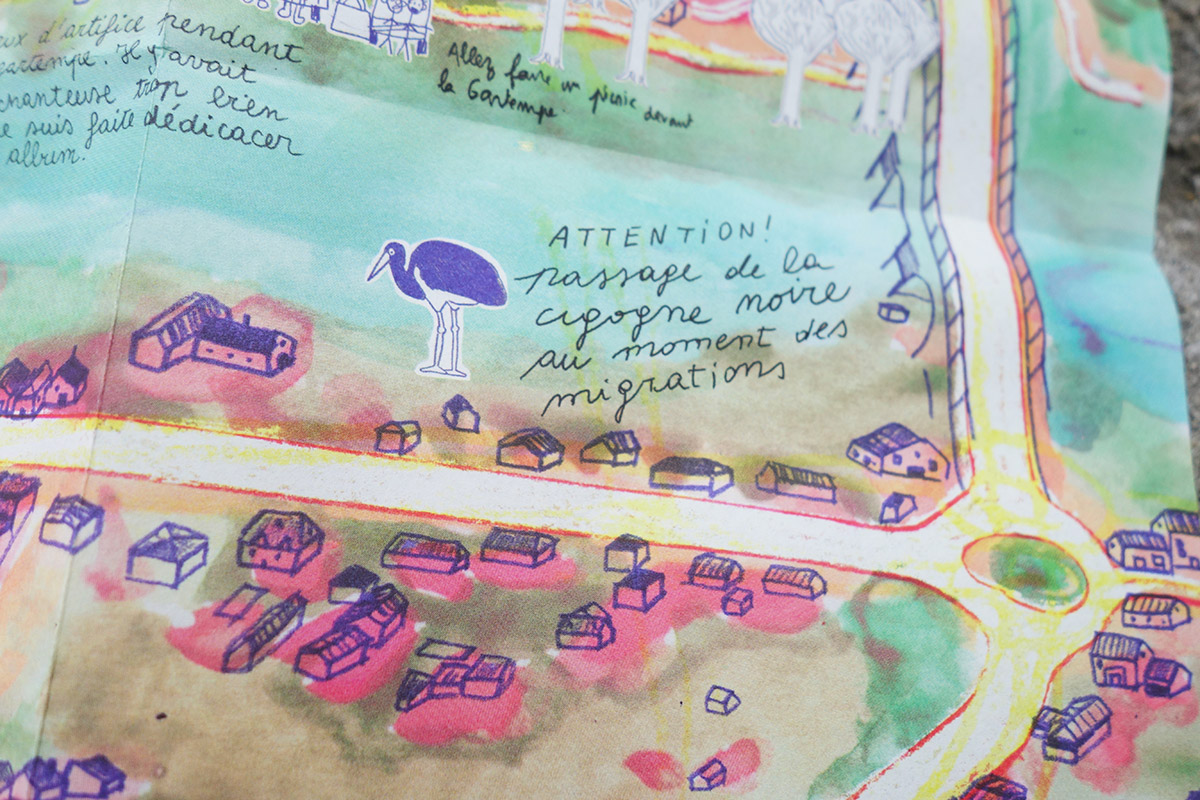 eux d'artifice pendant
eartempe. Il y avait
chanteuse trop bien
e suis faite dédicacer
album.
Allez faire un picnic devant
la Gartempe.
ATTENTION!
passage de la
cigogne noire
au moment des
migrations